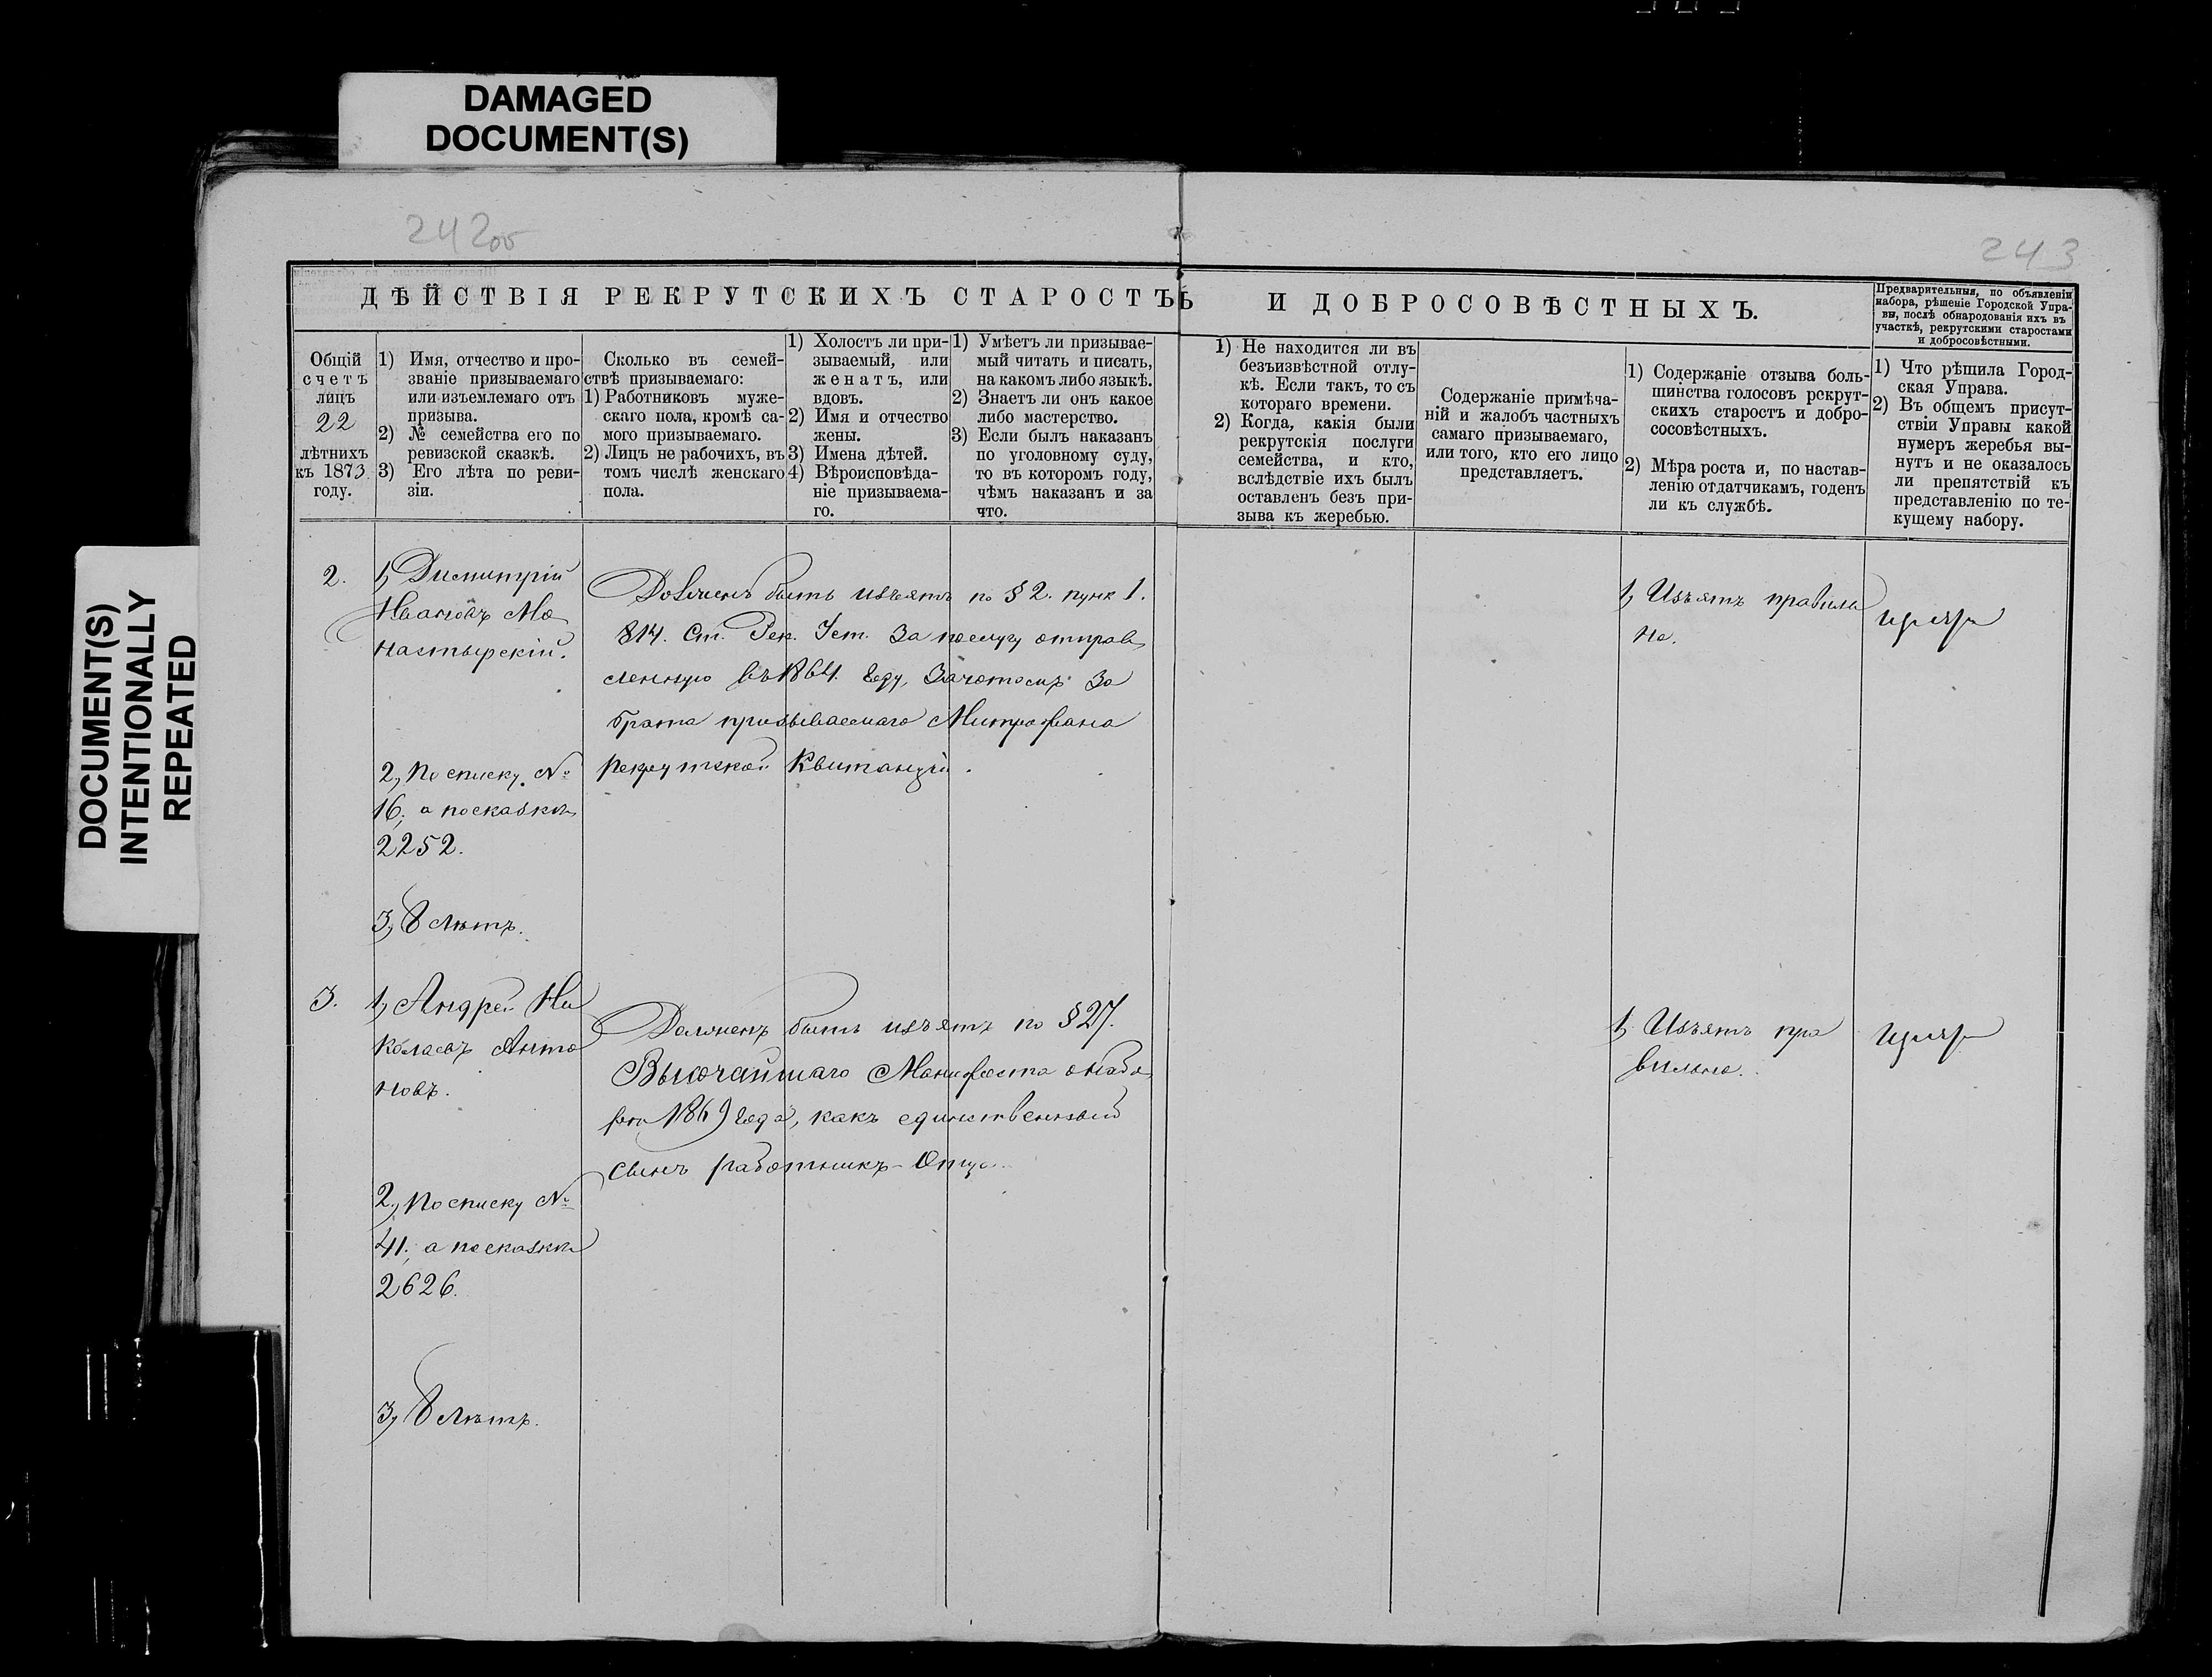 DAMAGED
DOCUMENT(S)
DOCUMENT(S)
INTENTIONALLY
REPEATED
242об
243
ДѢЙСТВІЯ РЕКРУТСКИХЪ СТАРОСТЪ
Ъ И ДОБРОСОВѢСТНЫХЪ.
Предварительныя, по объявленіи
набора, рѣшеніе Городской Упра-
вы, послѣ обнародованія ихъ въ
участкѣ, рекрутскими старостами
и добросовѣстными.
Общій
счетъ
лицъ
22
лѣтнихъ
къ 1873
году.
1) Имя, отчество и про-
званіе призываемаго
или изъемлемаго отъ
призыва.
2) № семейства его по
ревизской сказкѣ.
3) Его лѣта по реви-
зіи.
Сколько въ семей-
ствѣ призываемаго:
1) Работниковъ муже-
скаго пола, кромѣ са-
мого призываемаго.
2) Лицъ не рабочихъ, въ
томъ числѣ женскаго
пола.
1) Холостъ ли при-
зываемый, или
женатъ, или
вдовъ.
2) Имя и отчество
жены.
3) Имена дѣтей.
4) Вѣроисповѣда-
ніе призываема-
го.
1) Умѣетъ ли призывае-
мый читать и писать,
на какомъ либо языкѣ.
2) Знаетъ ли онъ какое
либо мастерство.
3) Если былъ наказанъ
по уголовному суду,
то въ которомъ году,
чѣмъ наказанъ и за
что.
1) Не находится ли въ
безъизвѣстной отлу-
кѣ. Если такъ, то съ
котораго времени.
2) Когда, какія были
рекрутскія послуги
семейства, и кто,
вслѣдствіе ихъ былъ
оставленъ безъ при-
зыва къ жеребью.
Содержаніе примѣча-
ній и жалобъ частныхъ
самаго призываемаго,
или того, кто его лицо
представляетъ.
1) Содержаніе отзыва боль-
шинства голосовъ рекрут-
скихъ старостъ и добро-
совѣстныхъ.
2) Мѣра роста и, по настав-
ленію отдатчикамъ, годенъ
ли къ службѣ.
1) Что рѣшила Город-
ская Управа.
2) Въ общемъ присут-
ствіи Управы какой
нумеръ жеребья вы-
нутъ и не оказалось
ли препятствій къ
представленію по те-
кущему набору.
2.
1, Димитрій
Ивановъ Мо
настырскій.
2, По списку №
16; а по сказкѣ
2252.
3, 8 лѣтъ.
Долженъ быть изъятъ по § 2. пунк 1.
814. Ст. Рек. Уст. За послугу отправ
ленную въ 1864. Году, Зачетомъ За
брата призываемаго Митрофана
рекрутской Квитанціи.
1, Изъятъ правиль
но.
3.
1, Андрей Ни
колаевъ Анто
новъ.
2, По списку №
41; а по сказкѣ
2626.
3, 8 лѣтъ.
Долженъ быть изъятъ по § 27.
Высочайшаго Манифеста о набо
рѣ 1869 Года, какъ единственный
сынъ работникъ - Отца.
1, Изъятъ пра
вильно.